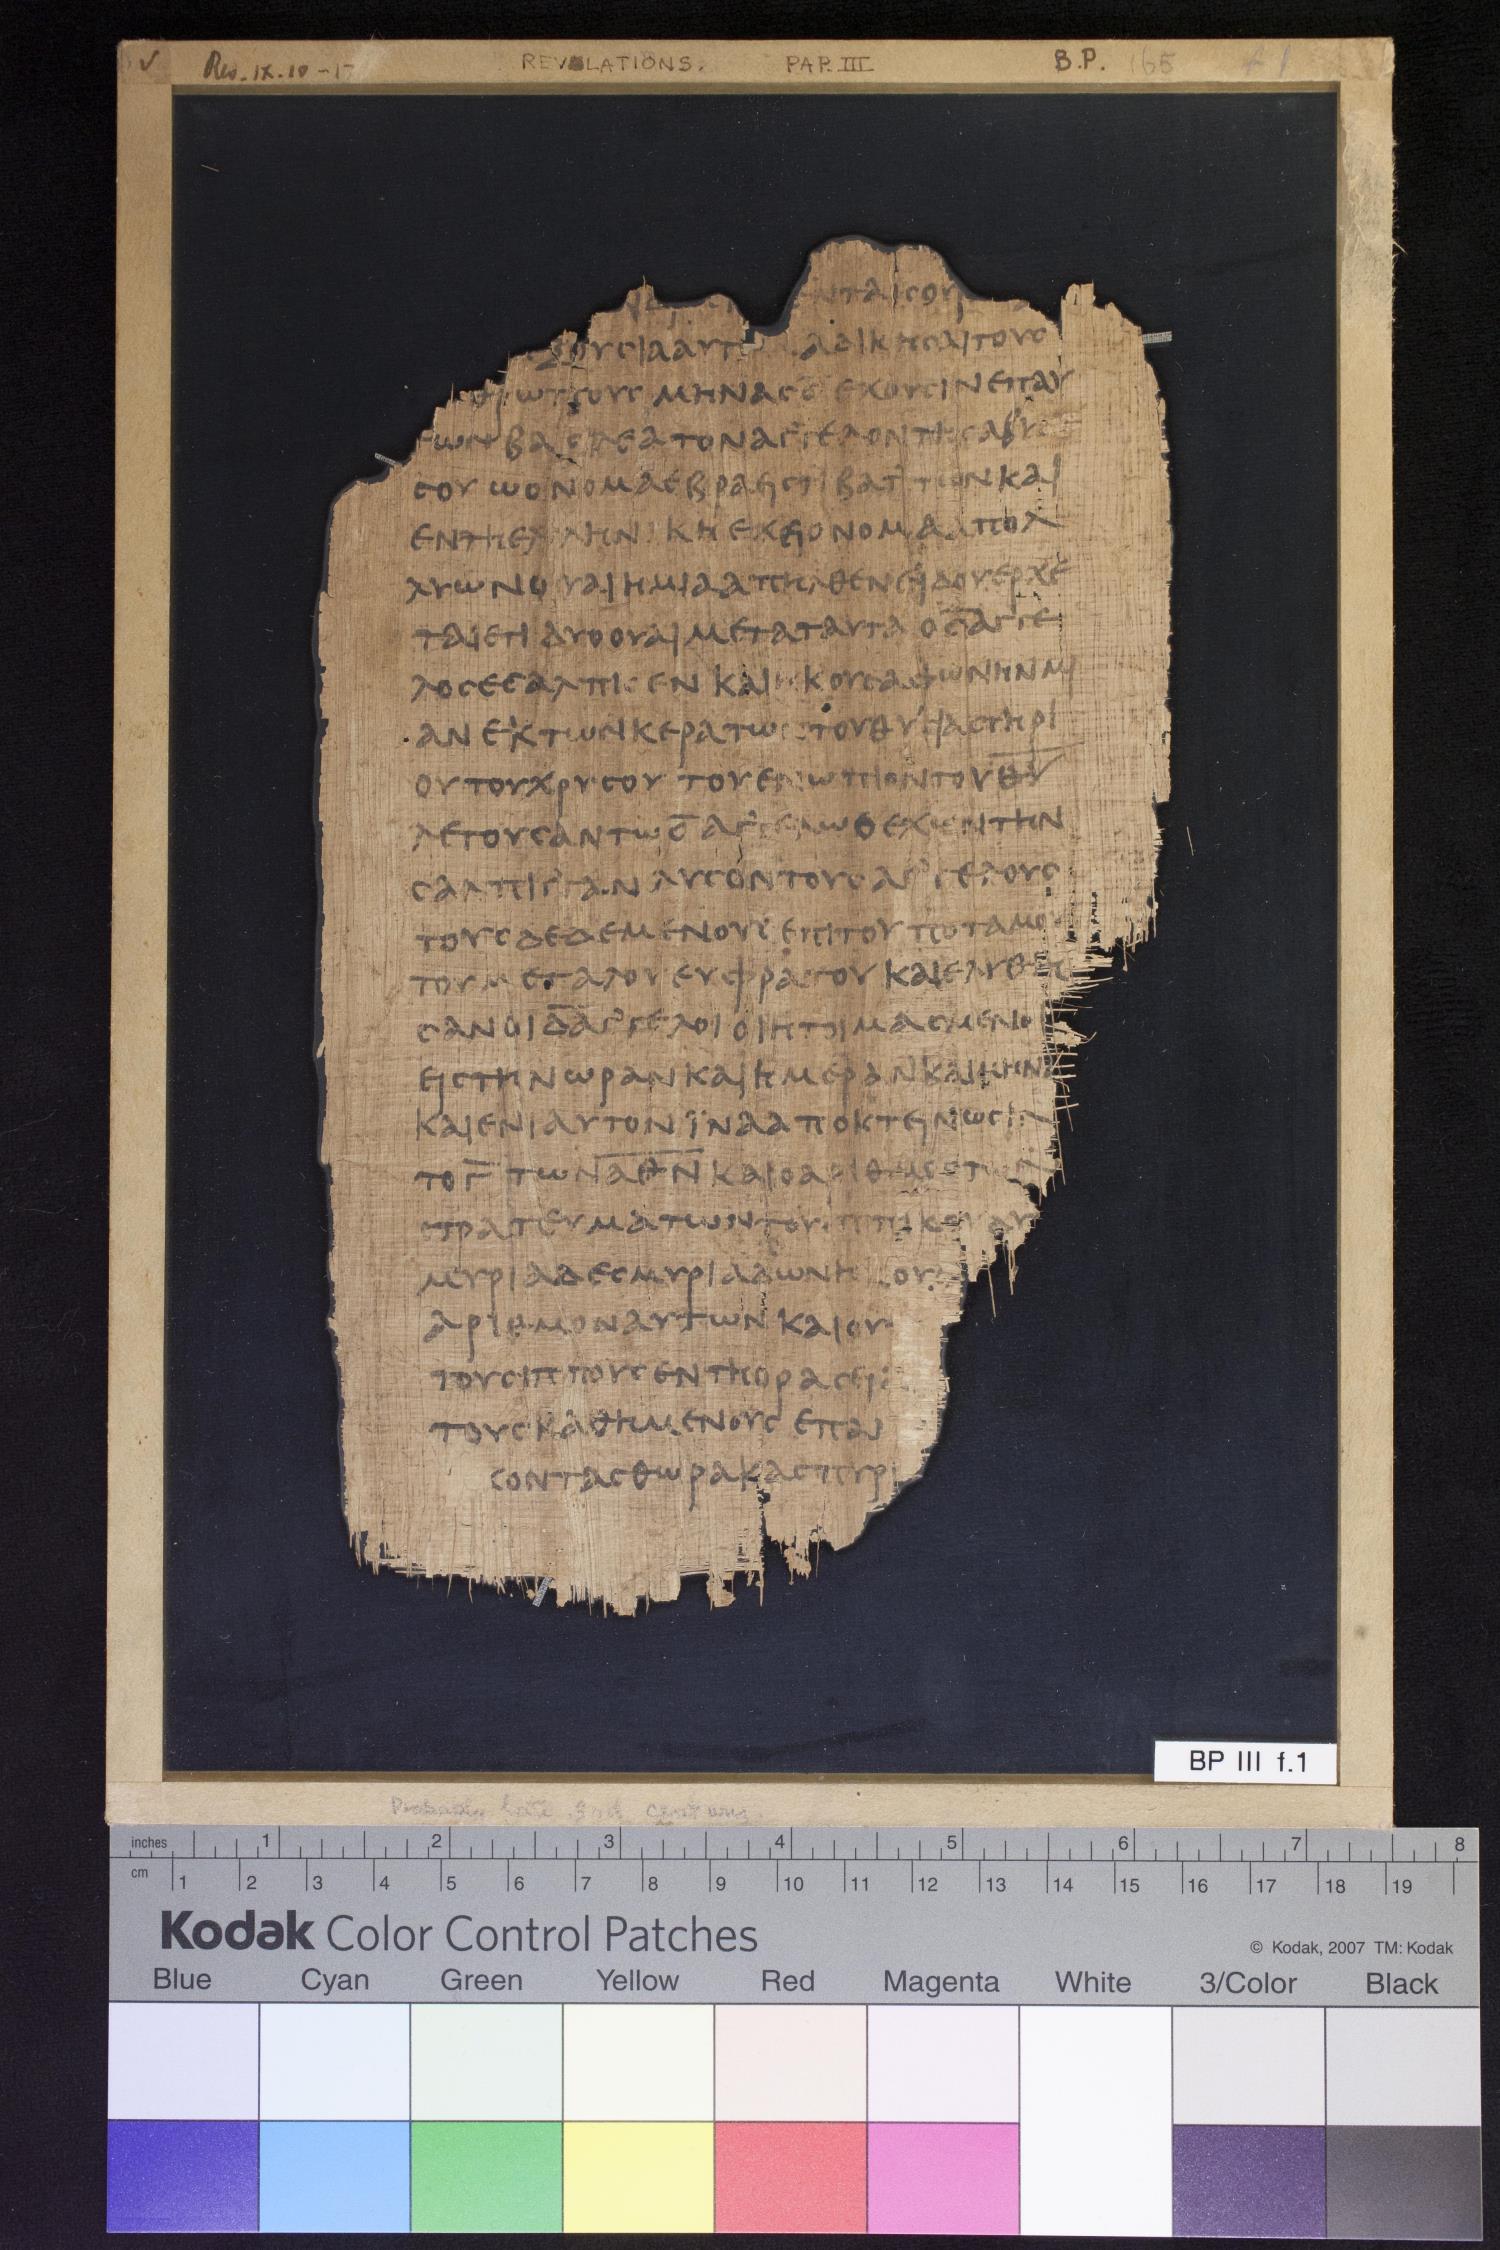 Rev. IX. 10 - 17
REVELATIONS.
PAP. III
B.P.
165
f 1
ΝΤΑΙϹΟΥ
ΟΥϹΙΑΑΥΤ ΑΔΙΚΗϹΑΙΤΟΥϹ
ΤΟΥϹ ΜΗΝΑϹ Ε̅ ΕΧΟΥϹΙΝΕΠΑΥ
ΤΩΝΒΑϹΙΛΕΑΤΟΝΑΓʼΓΕΛΟΝΤΗϹΑΒΥϹ
ϹΟΥΩΟΝΟΜΑΕΒΡΑΕΙϹΤΙΒΑΤʼΤΩΝΚΑΙ
ΕΝΤΗΕΛΛΗΝΙΚΗΕΧΕΙΟΝΟΜΑΑΠΟΛ
ΛΥΩΝΟΥΑΙΗΜΙΑΑΠΗΛΘΕΝΕΙΔΟΥΕΡΧΕ
ΤΑΙΕΤΙΔΥΟΟΥΑΙΜΕΤΑΤΑΥΤΑΟϚ̅ΑΓʼΓΕ
ΛΟϹΕϹΑΛΠΙϹΕΝΚΑΙΗΚΟΥϹΑΦΩΝΗΝΜΙ
ΑΝΕΚΤΩΝΚΕΡΑΤΩ ΤΟΥΘΥϹΙΑϹΤΗΡΙ
ΟΥΤΟΥΧΡΥϹΟΥΤΟΥΕΝΩΠΙΟΝΤΟΥΘ̅Υ̅
ΛΕΓΟΥϹΑΝΤΩϚ̅ΑΓʼΓΕΛΩΟΕΧΩΝΤΗΝ
ϹΑΛΠΙΓʼΓΑΝΛΥϹΟΝΤΟΥϹΑΓʼΓΕΛΟΥϹ
ΤΟΥϹΔΕΔΕΜΕΝΟΥϹΕΠΙΤΟΥΠΟΤΑΜΟΥ
ΤΟΥΜΕΓΑΛΟΥΕΥΦΡΑΤΟΥΚΑΙΕΛΥΘΗ
ϹΑΝΟΙΔ̅ΑΓʼΓΕΛΟΙΟΙΗΤΟΙΜΑϹΜΕΝΟΙ
ΕΙϹΤΗΝΩΡΑΝΚΑΙΗΜΕΡΑΝΚΑΙΜΗΝΑ
ΚΑΙΕΝΙΑΥΤΟΝΪΝΑΑΠΟΚΤΕΙΝΩϹΙΝ
ΤΟΓ̅ΤΩΝΑ̅Θ̅Ν̅ΚΑΙΟΑΡΙΘΜΟϹΤΩΝ
ϹΤΡΑΤΕΥΜΑΤΩΝΤΟΥΙΠΠΙΚΟΥΔΥ
ΜΥΡΙΑΔΕϹΜΥΡΙΑΔΩΝΗΚΟΥ
ΑΡΙΘΜΟΝΑΥΤΩΝΚΑΙΟΥ
ΤΟΥϹΙΠΠΟΥϹΕΝΤΗΟΡΑϹΕΙ
ΤΟΥϹΚΑΘΗΜΕΝΟΥϹΕΠΑΥ
ϹΟΝΤΑϹΘΩΡΑΚΑϹΠΥΡΙ
BP III f.1
Probably late 3rd century.
inches 1 2 3 4 5 6 7 8
cm 1 2 3 4 5 6 7 8 9 10 11 12 13 14 15 16 17 18 19
Kodak Color Control Patches
© Kodak, 2007 TM: Kodak
Blue Cyan Green Yellow Red Magenta White 3/Color Black